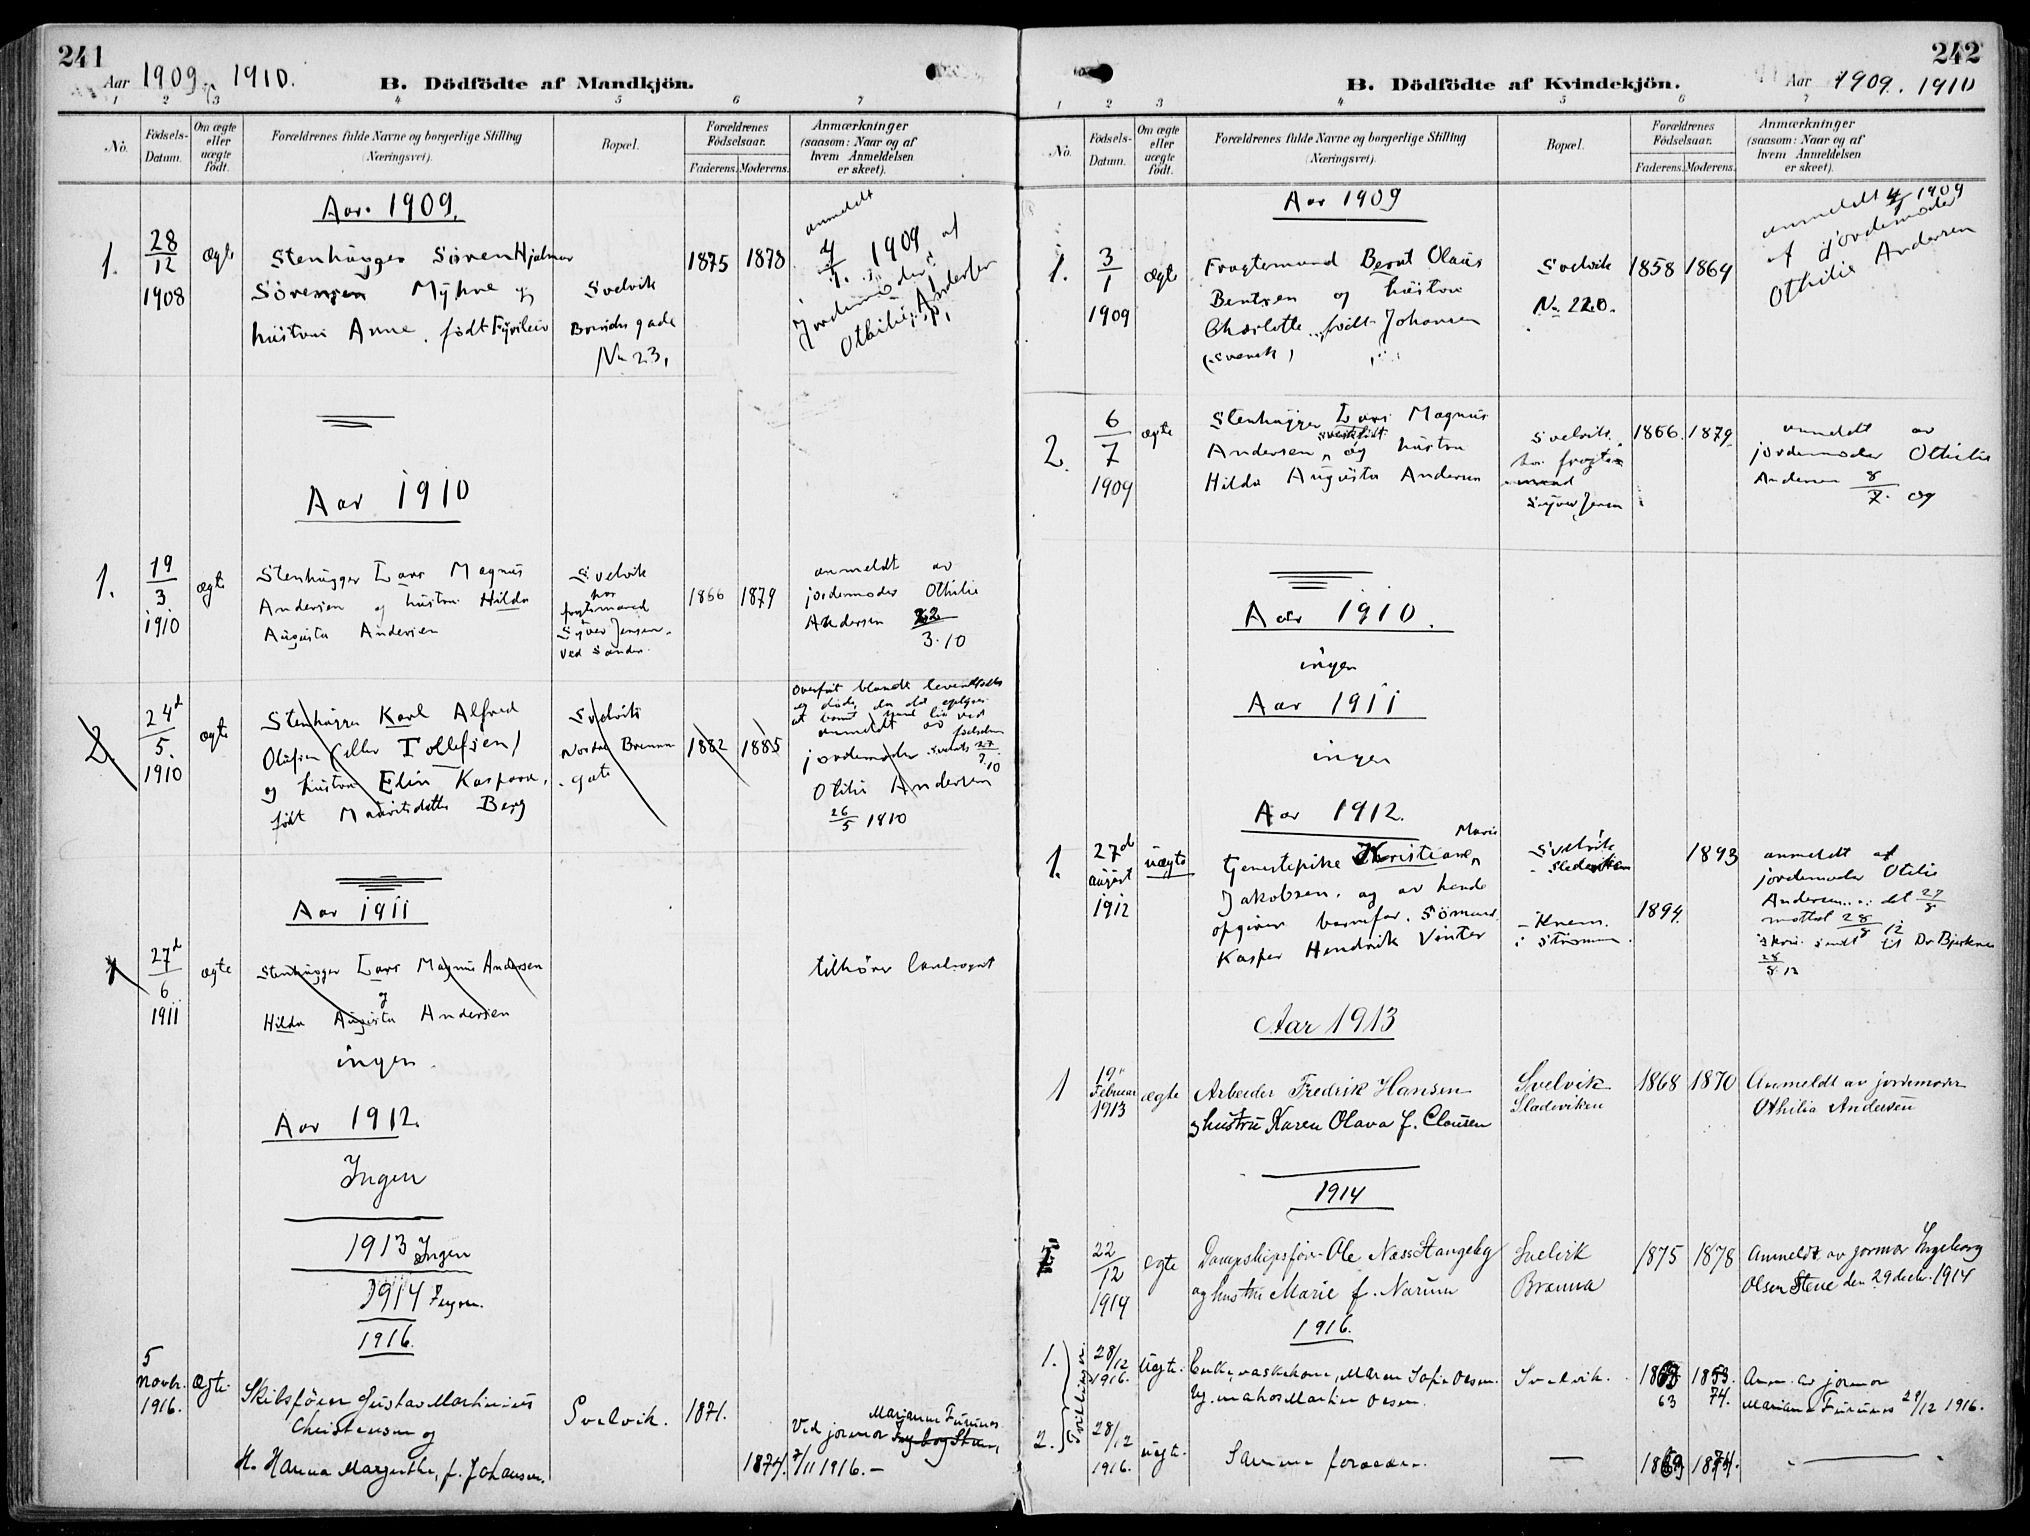 241
Aar 1909, 1910.
B. Dödfödte af Mandkjön.
1 2 3 4 5 6 7
No.
Födsels-Datum.
Om ægte eller uægte födt.
Forældrenes fulde Navne og borgerlige Stilling
(Næringsvei).
Bopæl.
Forældrenes Födselsaar.
Faderens. Moderens.
Anmærkninger
(saasom: Naar og af
hvem Anmeldelsen
er skeet).
Aar 1909.
1. 28/12 1908 ægte
Stenhugger Sören Hjalmar
Sörensen Myhre og
hustru Anne, födt
Svelvik
gade
No 23.
1875 1878
anmeldt
4/1. 1909 af
Jordemoder
Othilie Andersen
Aar 1910
1. 19/3 1910 ægte
Stenhugger Lars Magnus
Andersen og hustru Hilda
Augusta Andersen
Svelvik
hos
fragtemand
Syver Jensen
ved Sander.
1866 1879
anmeldt av
jordemoder Othilie
Andersen 22/3.10
2. 24d/5. 1910 ægte
Stenhugger Karl Alfred
Olufsen (eller Tollefsen)
og hustru Elin Kaspara,
födt Mauritsdatter Berg
Svelvik
Nordre Brenna
gate
1882 1885
overfört blandt levendefödte
og döde, da det oplyses
at barnet
anmeldt av
jordemoder
Otilie Andersen
26/5 1910
Aar 1911
1 27d/6 1911 ægte
Stenhugger Lars Magnus Andersen
og
Hilda Augusta Andersen
tilhörer landsognet
ingen.
Aar 1912.
Ingen
1913 Ingen
1914 Ingen.
1916.
5 novbr. 1916. Ægte.
Skibsförer Gustav Martinius
Christensen og
H. Hanna Margrethe, f. Johansen.
Svelvik.
1871.
1874.
Marianne Furunes
Ved jormor
/11 1916.—
242
Aar 1909. 1910
B. Dödfödte af Kvindekjön.
1 2 3 4 5 6 7
No.
Födsels-Datum.
Om ægte eller uægte födt.
Forældrenes fulde Navne og borgerlige Stilling
(Næringsvei).
Bopæl.
Forældrenes Födselsaar.
Faderens. Moderens.
Anmærkninger
(saasom: Naar og af
hvem Anmeldelsen
er skeet).
Aar 1909
1. 3/1 1909 ægte
Fragtemand Bernt Olaus
Bentsen og hustru
Charlotte födt Johansen
(svensk)
Svelvik
No 220.
1858 1864
anmeldt 4/1 1909
af jordemoder
Othilie Andersen
2. 6/7 1909 ægte
Stenhugger Lars Magnus
Andersen og hustru
Hilda Augusta Andersen
Svelvik.
hos fragtemand
Syver Jensen
1866. 1879.
anmeldt av
jordemoder Othilie
Andersen 8/7. 09
Aar 1910.
ingen
Aar 1911
ingen
Aar 1912.
1. 27d august 1912 uægte
Marie
Tjenestepike Kristiane
Jakobsen. og av hende
opgiven barnefar. Sömand
Kasper Hendrik Vinter
Svelvik
1893
1894.
anmeldt af
jordemoder Otilie
Andersen det 27/8
mottat 28/8 12
sendt til Dr Bjerknes
28/8 12
Aar 1913
1 19" Februar 1913 ægte
Arbeider Fredrik Hansen
og hustru Karen Olava f. Clausen
Svelvik
Sladeviken
1868 1870
Anmeldt av jordemoder
Othilia Andersen
1914
1 22/12 1914 ægte
Dampskipsförer Ole Næss Stangeby
og hustru Marie f. Narum
Svelvik
Brænna
1875 1878
Anmeldt av jormor Ingeborg
Olsen Stene den 29 decbr. 1914
1916.
Tvillinger
1. 28/12 1916. Uægte.
Enke, vaskekone, Maren Sofie Olsen.
Ug. matros Martin Olsen.
Svelvik.
63 74.
Anm. av jormor
Marianne Furunes 29/12 1916.
2. 28/12 1916. uægte.
Samme forældre.
—
1863 1874.